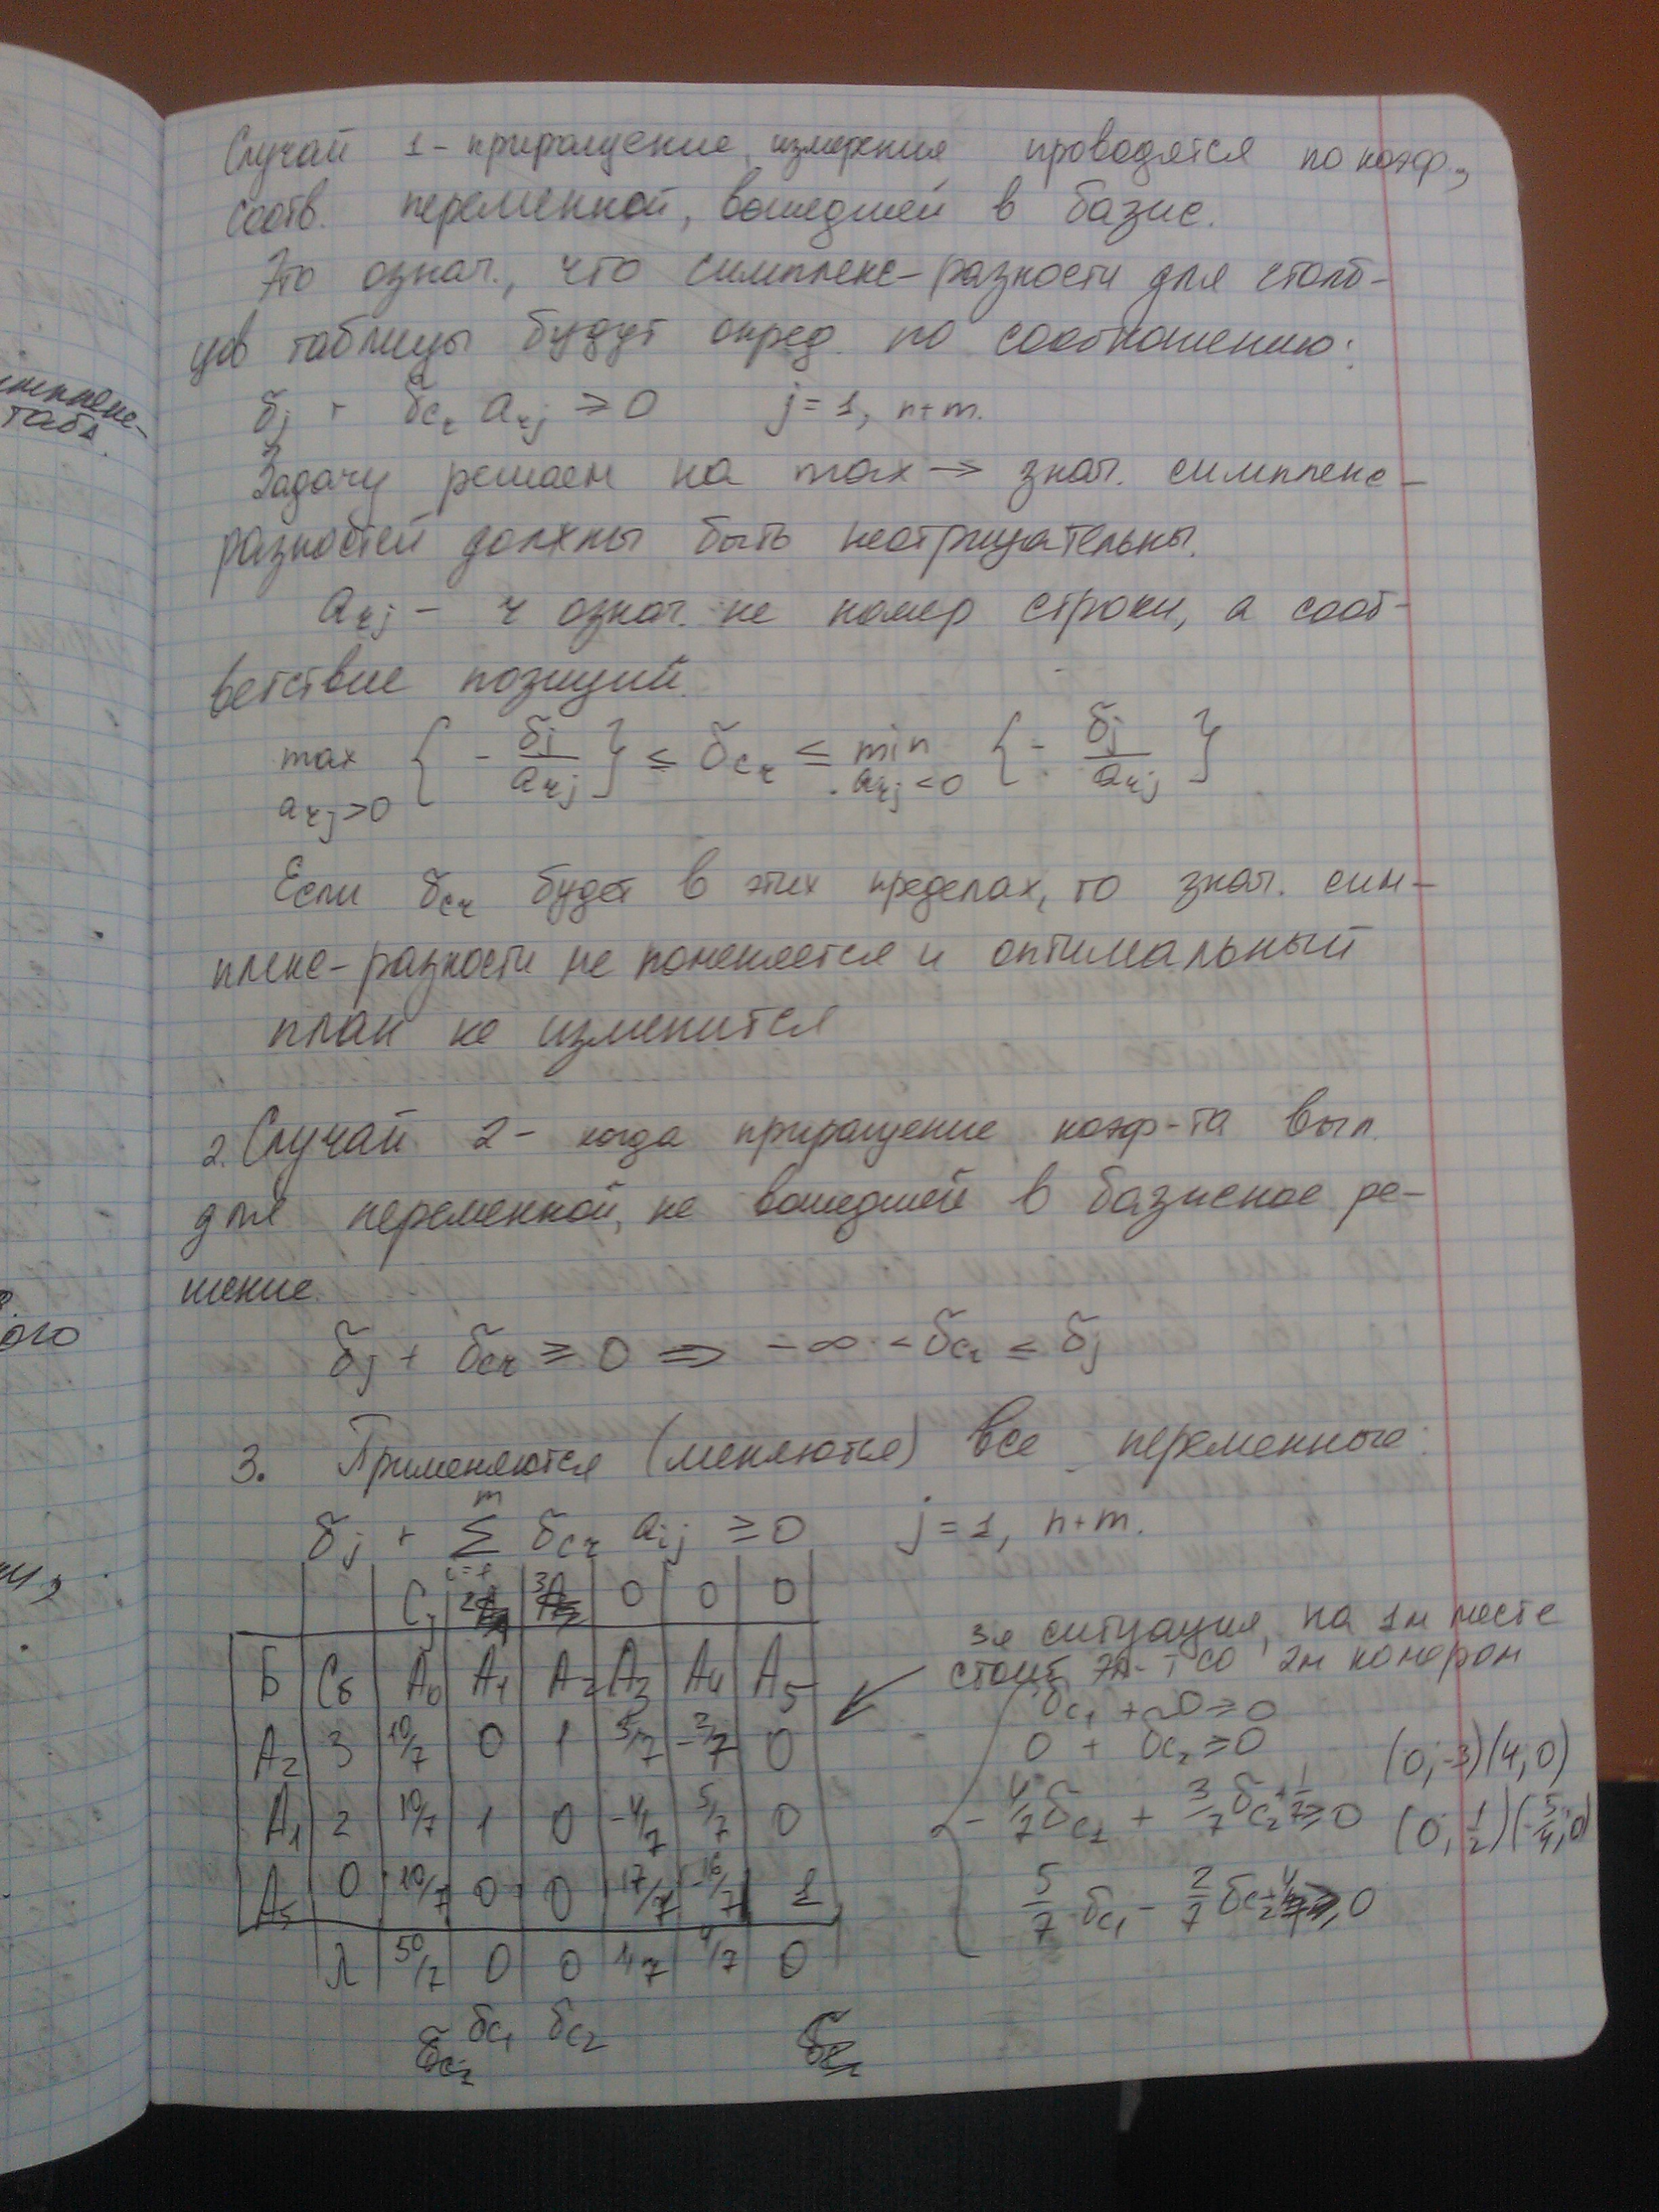 Случай 1 - приращение, измерения проводятся по коэф.,
соотв. переменной, вошедшей в базис.
Это означ., что симплекс-разности для столб-
цов таблицы будут опред. по соотношению:
δj + δcr arj ≥ 0 j = 1, n+m.
Задачу решаем на max → знач. симплекс-
разностей должны быть неотрицательны.
arj - r означ. не номер строки, а соот-
ветствие позиций.
max { - δj / arj } ≤ δcr ≤ min { - δj / arj }
arj>0 arj<0
Если δcr будет в этих пределах, то знач. сим-
плекс-разности не поменяется и оптимальный
план не изменится
2. Случай 2 - когда приращение коэф-та вып.
для переменной, не вошедшей в базисное ре-
шение.
δj + δcr ≥ 0 ⇒ -∞ < δcr ≤ δj
3. Применяются (меняются) все переменные:
δj + Σ δcr aij ≥ 0 j = 1, n+m.
m
i=1
Cj 2 3 0 0 0
Б Cб A0 A1 A2 A3 A4 A5
A2 3 10/7 0 1 3/7 -2/7 0
A1 2 10/7 1 0 -4/7 5/7 0
A5 0 10/7 0 0 17/7 -16/7 1
Л 50/7 0 0 1/7 4/7 0
δc1 δc2
3я ситуация, на 1м месте
стоит эл-т со 2м номером
δc1 + 0 ≥ 0
0 + δc2 ≥ 0 (0,-3)(4,0)
- 4/7 δc1 + 3/7 δc2 + 1/7 ≥ 0 (0, 1/2)(-5/4, 0)
5/7 δc1 - 2/7 δc2 + 4/7 ≥ 0